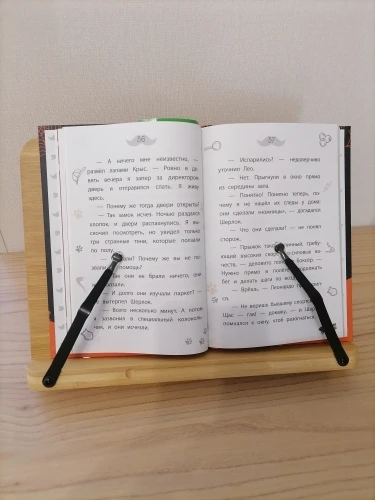 56
— А ничего мне неизвестно, —
развёл лапами Крыс. — Ровно в де-
вять вечера я запер за директором
дверь и отправился спать. Я живу
здесь.
— Почему же тогда двери открыты?
— Так замок исчез. Ночью раздался
хлопок, и двери распахнулись. Я вы-
скочил посмотреть, но увидел только
три странные тени, которые ползали
по полу.
Почему же вы не по-
помощь?
они не брали ничего, они
— И долго они изучали паркет? —
не вытерпел Шерлок.
— Всего несколько минут. А потом
я позвонил в специальный колоколь-
чик, и они исчезли.
57
— Испарились? — недоверчиво
уточнил Лео.
— Нет. Прыгнули в окно прямо
из середины зала.
— Понятно! Понятно теперь, по-
чему я не нашёл их следы у дома:
они сделали ножницы, — догадался
Шерлок.
— Что они сделали? — не понял
сторож.
— Прыжок такой
ющий высоких
честв, — деловито
Нужно прямо в полёте
бег и делать шаги по воздуху.
— Врёшь, — Леонардо
— Не веришь бывшему
Щас — гав! — докажу, — и Шер
помчался к окну, чтоб разогнаться